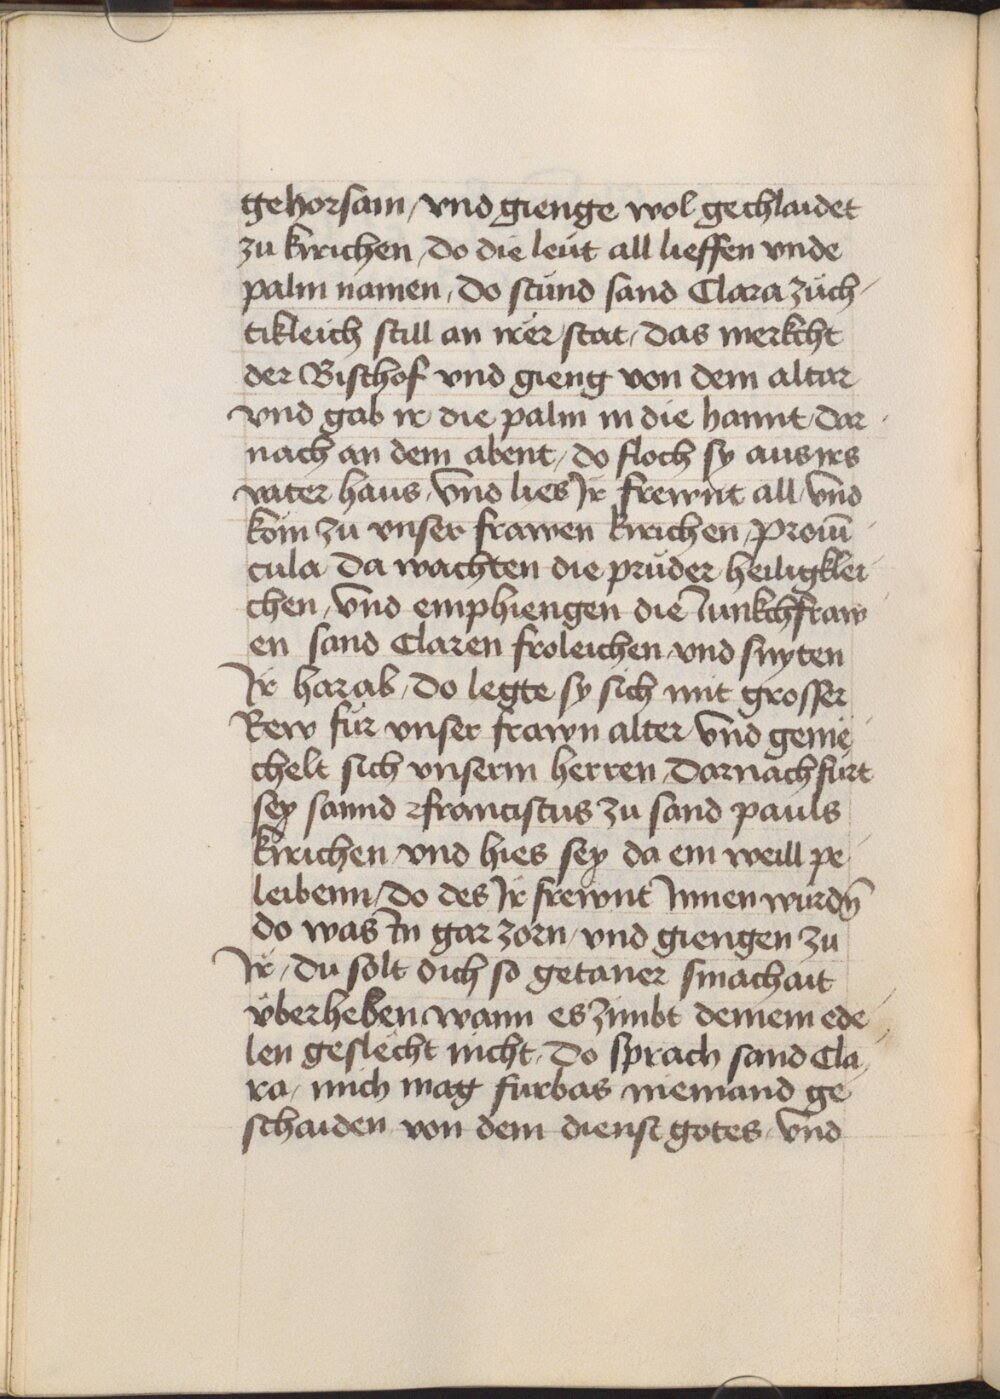 gehorsam / vnd gienge wol gechlaidet
zu kirichen / do die leüt all lieffen vnde
palm namen / do stuend sand Clara züch /
tikleich still an irer stat / das merkcht
der Bischof vnd gieng von dem altar
vnd gab ir die palm in die hannt / dar
nach an dem abent / do floch sy aus irs
vater haus / vnd lies Ir frewnt all / vnd
kom zu vnser frawen kirichen / Prouī
cula da wachten die prüder heiligklei
chen / vnd emphiengen die Iunkchfraw
en sand Claren froleichen / vnd snyten
Ir har ab / do legte sy sich mit grosser
Rew für vnser frawn alter / vnd geme /
chelt sich vnserm herren / Darnach fürt
sey sannd franciscus zu sand pauls
kirichen / vnd hies sey da ein weill pe
leibenn / do des Ir frewnt Innen wurdn̄
do was In gar zorn / vnd giengen zu
Ir / du solt dich so getaner smachait
vberheben wann es zimbt deinem ede /
len geslecht nicht / Do sprach sand Cla /
ra / mich mag fürbas niemand ge
schaiden von dem dienst gotes / vnd